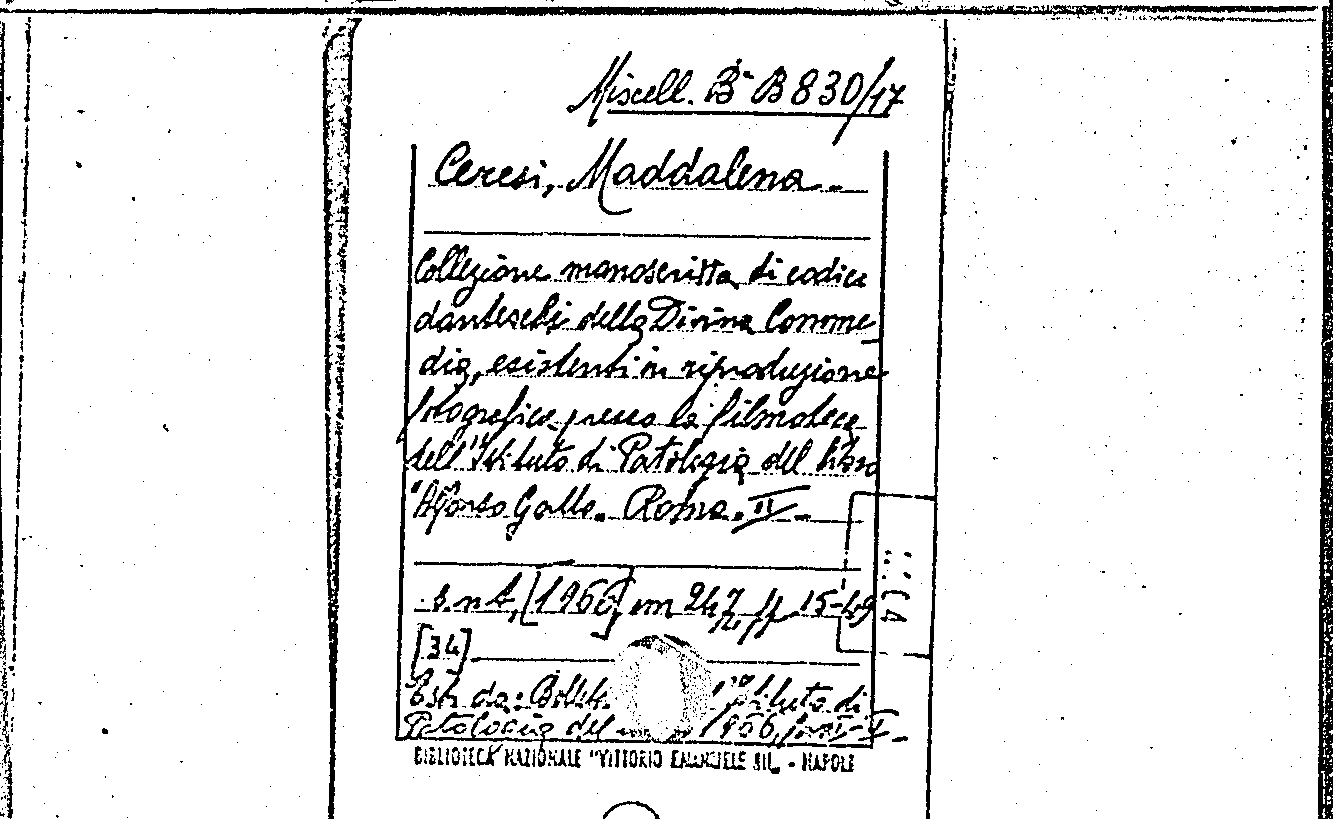 Miscell. Ba B 830/17
Ceresi, Maddalena.-
Collezione manoscritta di codici
danteschi della Divina Comme
dia, esistenti in riproduzione
fotografica presso la filmoteca
dell'Istituto di Patologia del libro
"Alfonso Gallo. Roma. II -
s.n.t, [1966] in 24?, pp. 15-49
[34]
Estr. da: Bollet. Istituto di
Patologia del 1966, fasc I-II.-
BIBLIOTECA NAZIONALE "VITTORIO EMANUELE III" - NAPOLI